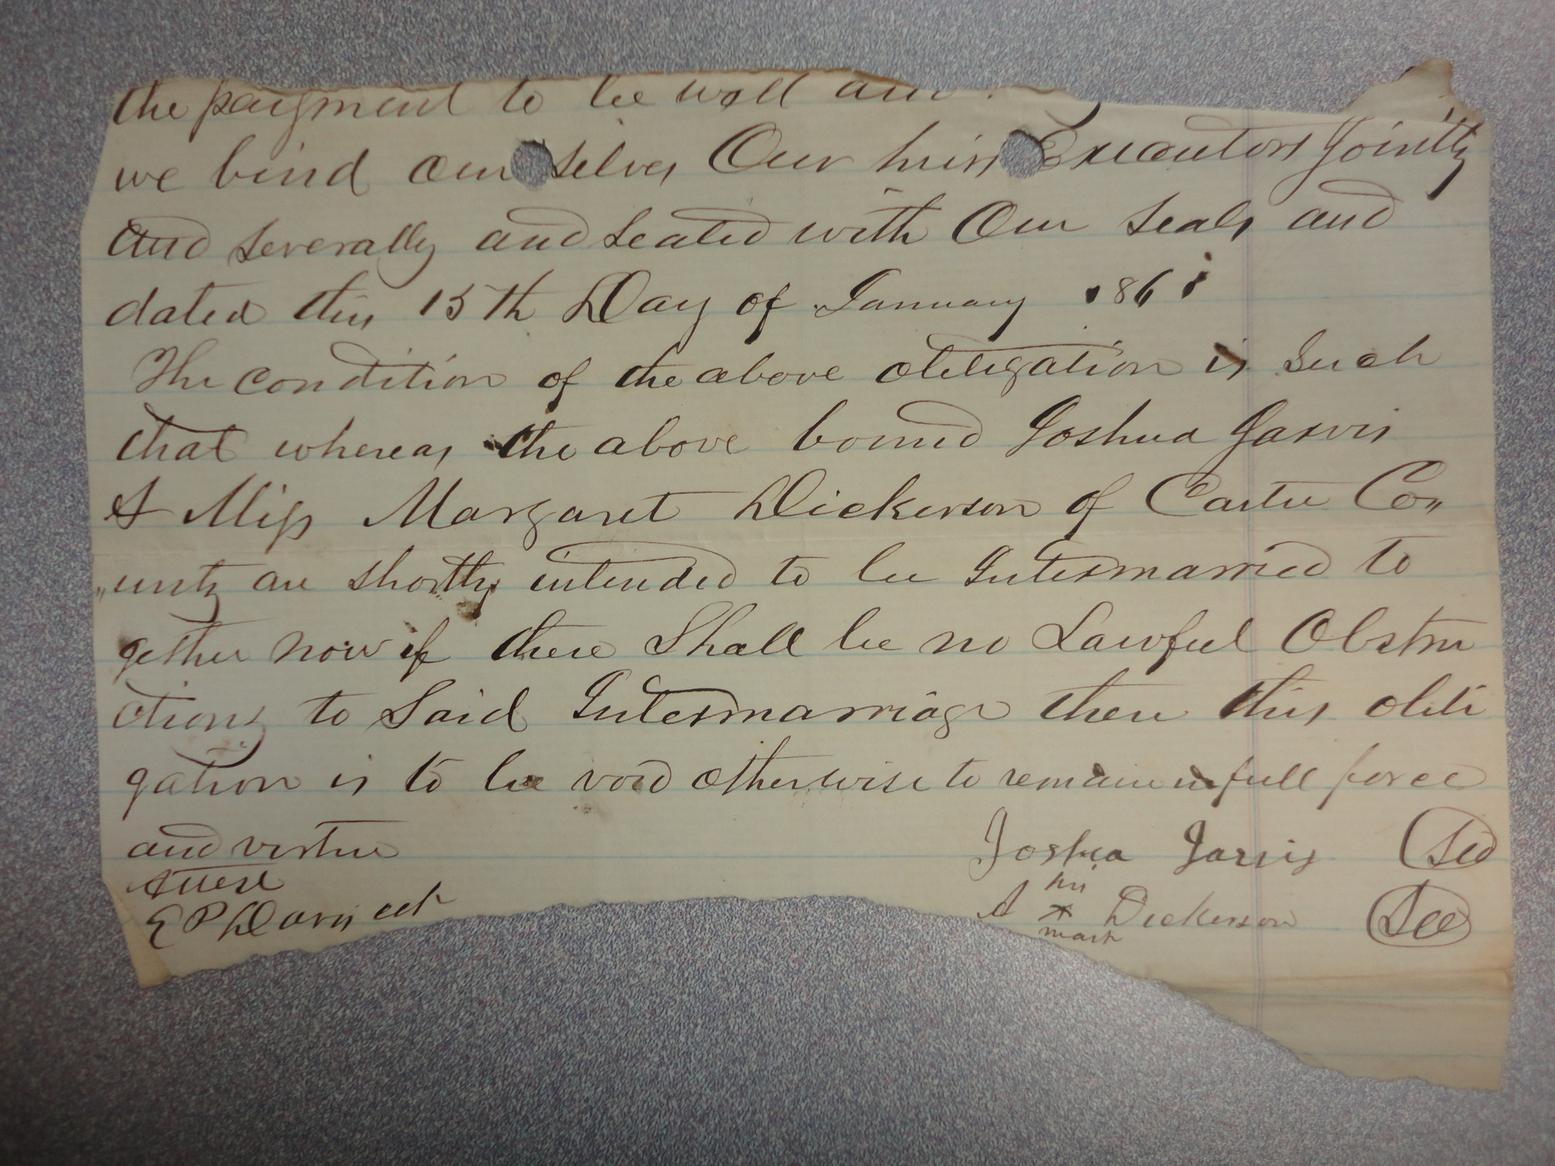 the payment to be well and
we bind our selves Our heirs Executors Jointly
and severally and sealed with Our seals and
dated this 15th Day of January 1861
The condition of the above obligation is Such
that whereas the above bound Joshua Jarvis
& Miss Margaret Dickerson of Carter Co"
"unty are shortly intended to be Intermarried to
gether now if there Shall be no Lawful Obstru
ctions to Said Intermarriage then this obli
gation is to be void otherwise to remain in full force
and virtue
Joshua Jarvis Sed
Attest
his
A x Dickerson See
mark
E P Davis cck